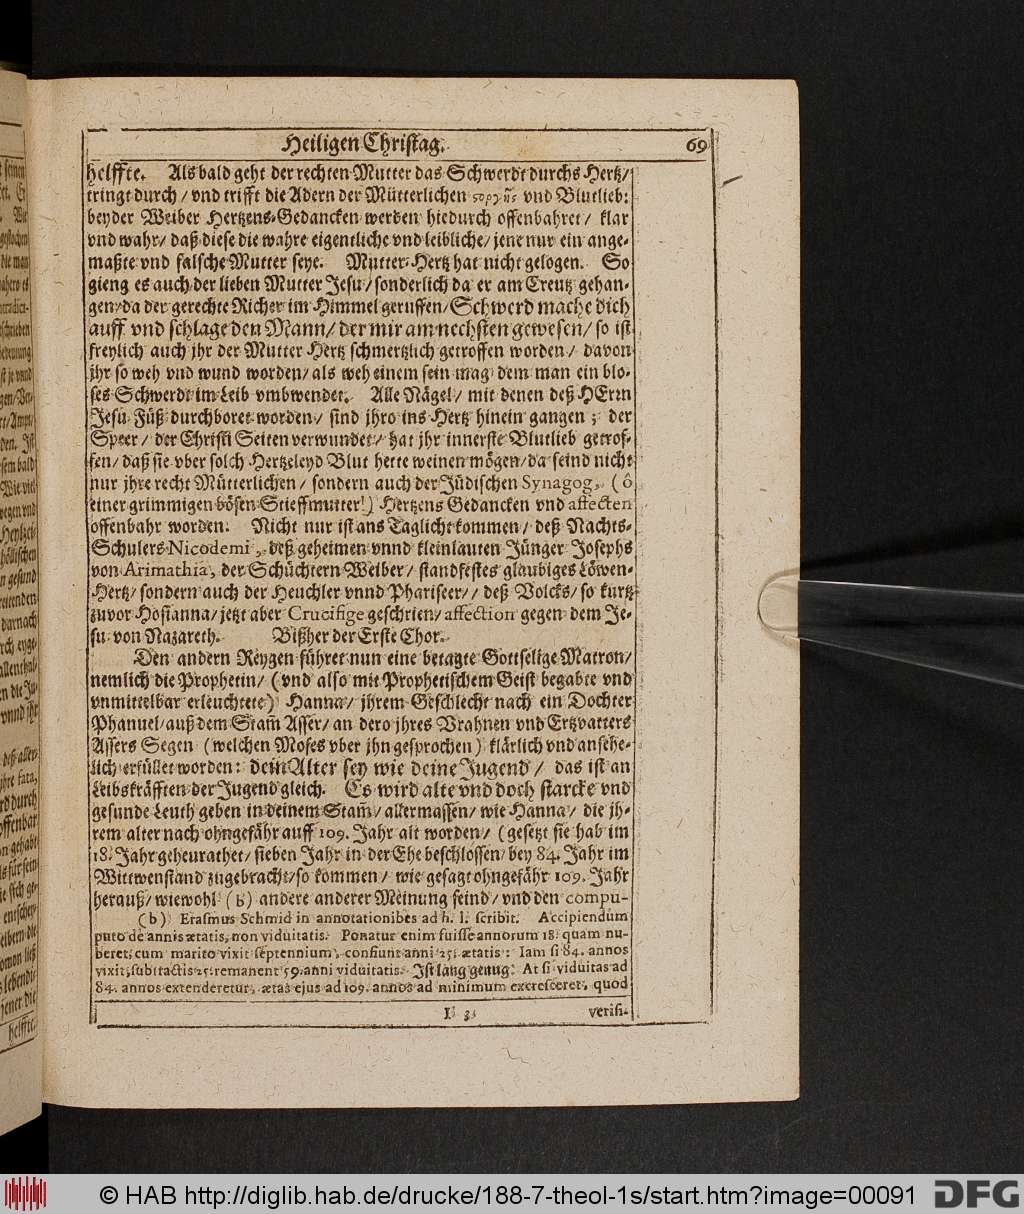 Heiligen Christag. 69
helffte. Als bald geht der rechten Mutter das Schwerdt durchs Hertz/
tringt durch/ vnd trifft die Adern der Mütterlichen ϛοργῆς vnd Blutlieb:
beyder Weiber Hertzens-Gedancken werden hiedurch offenbahret/ klar
vnd wahr/ daß diese die wahre eigentliche vnd leibliche/ jene nur ein ange-
maßte vnd falsche Mutter seye. Mutter-Hertz hat nicht gelogen. So
gieng es auch der lieben Mutter Jesu/ sonderlich da er am Creutz gehan-
gen/ da der gerechte Richer im Himmel geruffen/ Schwerd mache dich
auff vnd schlage den Mann/ der mir am nechsten gewesen/ so ist
freylich auch jhr der Mutter Hertz schmertzlich getroffen worden/ davon
jhr so weh vnd wund worden/ als weh einem sein mag dem man ein blo-
ses Schwerdt im Leib vmbwendet. Alle Nägel/ mit denen deß HErrn
Jesu Füß durchboret worden/ sind jhro ins Hertz hinein gangen; der
Speer/ der Christi Seiten verwundet/ hat jhr innerste Blutlieb getrof-
fen/ daß sie vber solch Hertzeleyd Blut hette weinen mögen/ da seind nicht
nur jhre recht Mütterlichen/ sondern auch der Jüdischen Synagog, (ô
einer grimmigen bösen Stieffmutter!) Hertzens Gedancken vnd affecten
offenbahr worden: Nicht nur ist ans Taglicht kommen/ deß Nachts-
Schulers Nicodemi, deß geheimen vnnd kleinlauten Jünger Josephs
von Arimathia, der Schüchtern Weiber/ standfestes glaubiges Löwen-
Hertz/ sondern auch der Heuchler vnnd Phariseer// deß Volcks/ so kurtz
zuvor Hosianna/ jetzt aber Crucifige geschrien/ affection gegen dem Je-
su von Nazareth. Bißher der Erste Chor.
Den andern Reygen führet nun eine betagte Gottselige Matron/
nemlich die Prophetin/ (vnd also mit Prophetischem Geist begabte vnd
vnmittelbar erleuchtete) Hanna/ jhrem Geschlecht nach ein Dochter
Phanuel/ auß dem Stam̃ Asser/ an dero jhres Vrahnen vnd Ertzvatters
Assers Segen (welchen Moses vber jhn gesprochen) klärlich vnd ansehe-
lich erfüllet worden: dein Alter sey wie deine Jugend/ das ist an
Leibskräfften der Jugend gleich. Es wird alte vnd doch starcke vnd
gesunde Leuth geben in deinem Stam̃/ allermassen/ wie Hanna/ die jh-
rem alter nach ohngefähr auff 109. Jahr alt worden/ (gesetzt sie hab im
18. Jahr geheurathet/ sieben Jahr in der Ehe beschlossen/ bey 84. Jahr im
Wittwenstand zugebracht/ so kommen/ wie gesagt ohngefähr 109. Jahr
herauß/ wiewohl (b) andere anderer Meinung seind/ vnd den compu-
(b) Erasmus Schmid in annotationibes ad h. l. scribit. Accipiendum
puto de annis ætatis, non viduitatis. Ponatur enim fuisse annorum 18. quam nu-
beret, cum marito vixit septennium, confiunt anni 25. ætatis: Iam si 84. annos
vixit, subtactis 25. remanent 59. anni viduitatis. Ist lang genug: At si viduitas ad
84. annos extenderetur, ætas ejus ad 109. annos ad minimum excresceret, quod
I 3 verisi-
helffte.
© HAB http://diglib.hab.de/drucke/188-7-theol-1s/start.htm?image=00091 DFG